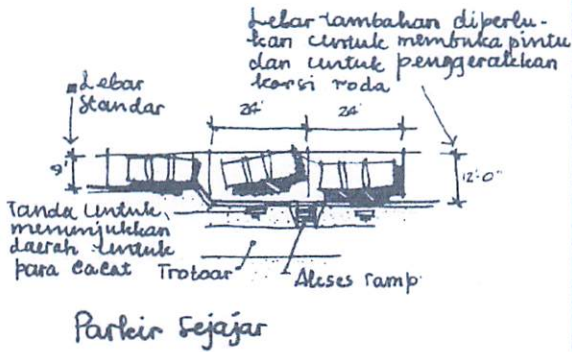 Lebar tambahan diperlu-
kan untuk membuka pintu
dan untuk penggerakkan
korsi roda
Lebar
Standar
24'
24'
9'
12'-0"
Tanda untuk
menunjukkan
daerah untuk
para cacat
Trotoar
Akses ramp
Parkir Sejajar